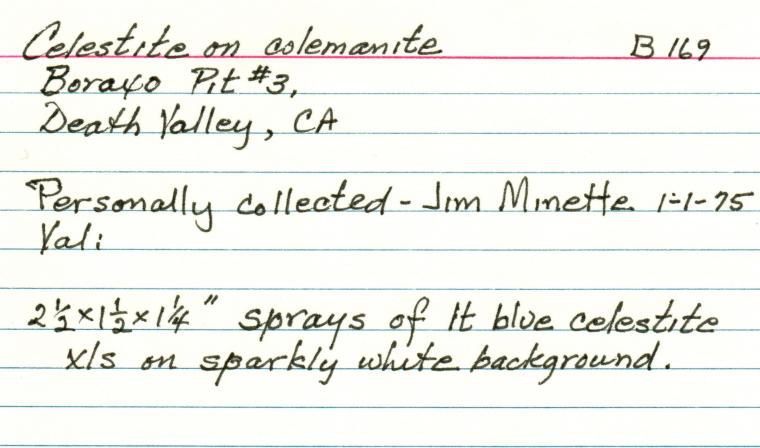 Celestite on colemanite B 169
Boraxo Pit #3,
Death Valley, CA
Personally collected - Jim Minette 1-1-75
Val:
2 1/2 x 1 1/2 x 1 1/4" sprays of lt blue celestite
xls on sparkly white background.